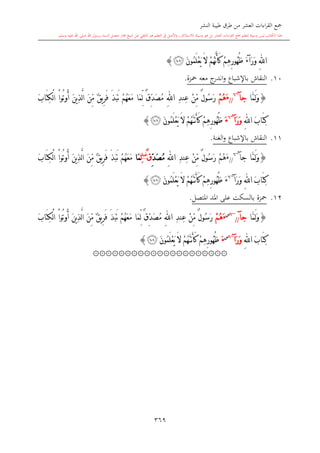 جمع القراءات العشر من طرق طيبة النشر
الله وَرَآءَ ظُهُورِهِمْ كَأَنَّهُمْ لَا يَعْلَمُونَ ﴾
١٠. النقاش بالإشباع واندرج معه حمزة.
﴿ وَلَمَّا جِآءَهُمْ رَسُولٌ مِّنْ عِندِ اللهِ مُصَدِّقٌ لِّمَا مَعَهُمْ نَبَذَ فَرِيقٌ مِّنَ الَّذِينَ أُوتُواْ الْكِتَابَ
كِتَابَ اللهِ وَرَآءَ ظُهُورِهِمْ كَأَنَّهُمْ لَا يَعْلَمُونَ ﴾
١١. النقاش بالإشباع والغنة.
﴿ وَلَمَّا جِآءَهُمْ رَسُولٌ مِّنْ عِندِ اللهِ مُصَدِّقٌ لِّمَا مَعَهُمْ نَبَذَ فَرِيقٌ مِّنَ الَّذِينَ أُوتُواْ الْكِتَابَ
كِتَابَ اللهِ وَرَآءَ ظُهُورِهِمْ كَأَنَّهُمْ لَا يَعْلَمُونَ ﴾
١٢. حمزة بالسكت على المد المتصل.
﴿ وَلَمَّا جِآءَهُمْ رَسُولٌ مِّنْ عِندِ اللهِ مُصَدِّقٌ لِّمَا مَعَهُمْ نَبَذَ فَرِيقٌ مِّنَ الَّذِينَ أُوتُواْ الْكِتَابَ
كِتَابَ اللهِ وَرَآءَ ظُهُورِهِمْ كَأَنَّهُمْ لَا يَعْلَمُونَ ﴾
٣٦٩